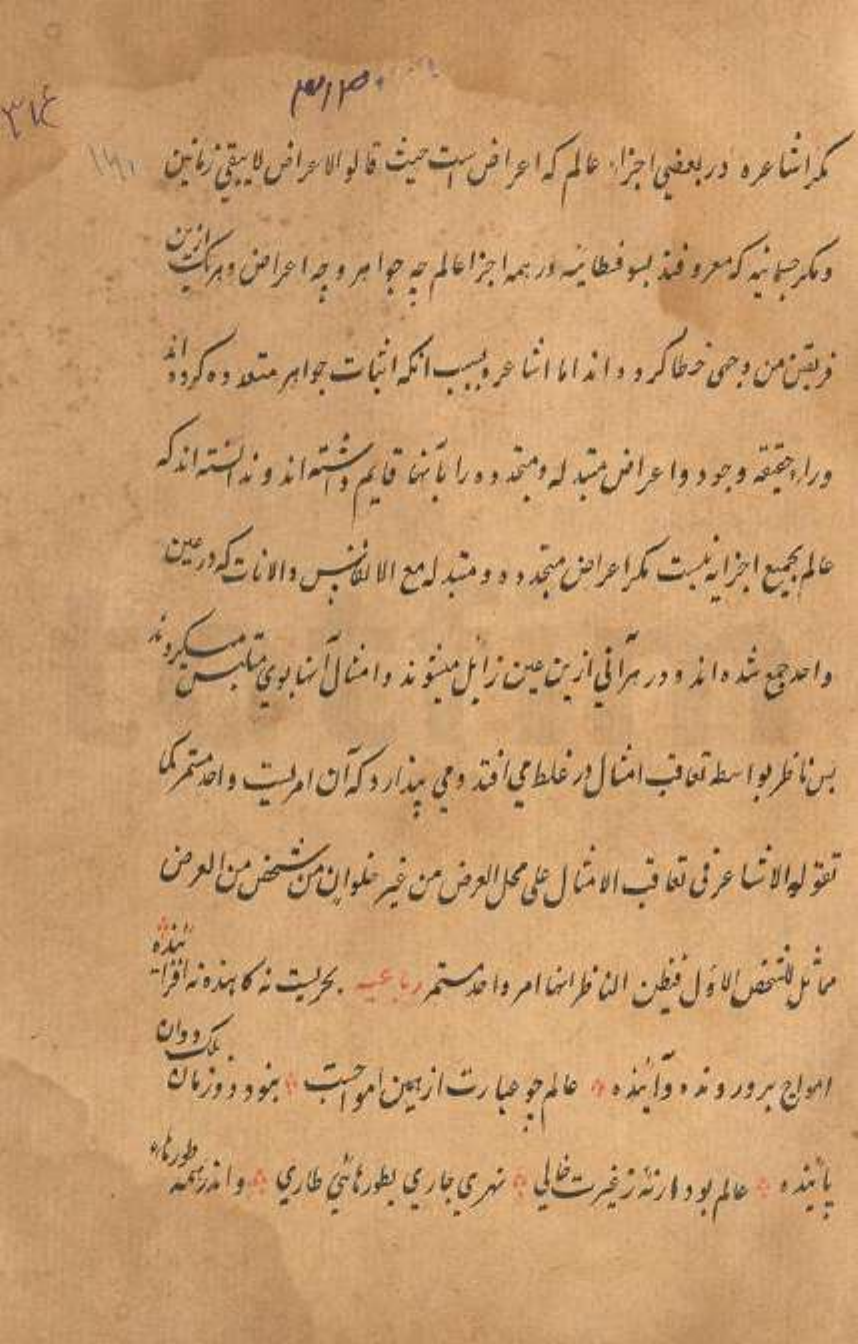 ۳۱۳
۳۱۴
مکر اشاعره در بعضی اجزاء عالم که اعراض است حیث قالو الاعراض لا یبقی زمانین
و مکر حسبانیه که معروفند بسوفسطائیه در همه اجزا عالم چه جواهر و چه اعراض و هریک ازین
فریقین من وجهی خطا کرده اند اما اشاعره بسبب انکه اثبات جواهر متعدده کرده اند
وراء حقیقة وجود و اعراض متبدله و متجدده را بآنها قایم داشته اند و ندانسته اند که
عالم بجمیع اجزایه نیست مکر اعراض متجدده و متبدله مع الانفاس والانات که در عین
واحد جمع شده اند و در هر آنی ازین عین زائل میشوند و امثال آنها بوی متلبس میکردند
بس ناظر بواسطه تعاقب امثال در غلط می افتد و می پندارد که آن امریست واحد مستمر کما
تقوله الاشاعرة فی تعاقب الامثال علی محل العرض من غیر خلو ان من شخص من العرض
مماثل للشخص الاول فیظن الناظر انها امر واحد مستمر رباعیه بحریست نه کاهنده نه افزاینده
امواج برو رونده و آینده عالم چو عبارت از همین امواجست نبود دو زمان بلک دو آن
پائینده عالم بود ار نه ز عبرت خالی نهری جاری بطورهائی طاری و اندر همه طورهاء